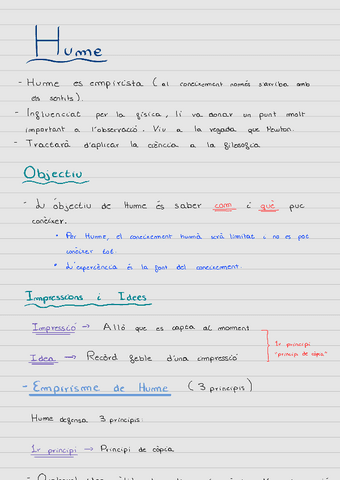 Hume
- Hume es empirista (al coneixement només s'arriba amb
els sentits).
- Influenciat per la física, li va donar un punt molt
important a l'observació. Viu a la vegada que Newton.
- Tractarà d'aplicar la ciència a la filosofia
Objectiu
- L'objectiu de Hume és saber com i què puc
conèixer.
• Per Hume, el coneixement humà serà limitat i no es pot
conèixer tot.
• L'experiència és la font del coneixement.
Impressions i Idees
Impressió → Allò que es capta al moment
Idea → Record feble d'una impressió
1r principi
"principi de còpia"
- Empirisme de Hume (3 principis)
Hume defensa 3 principis:
1r principi → Principi de còpia